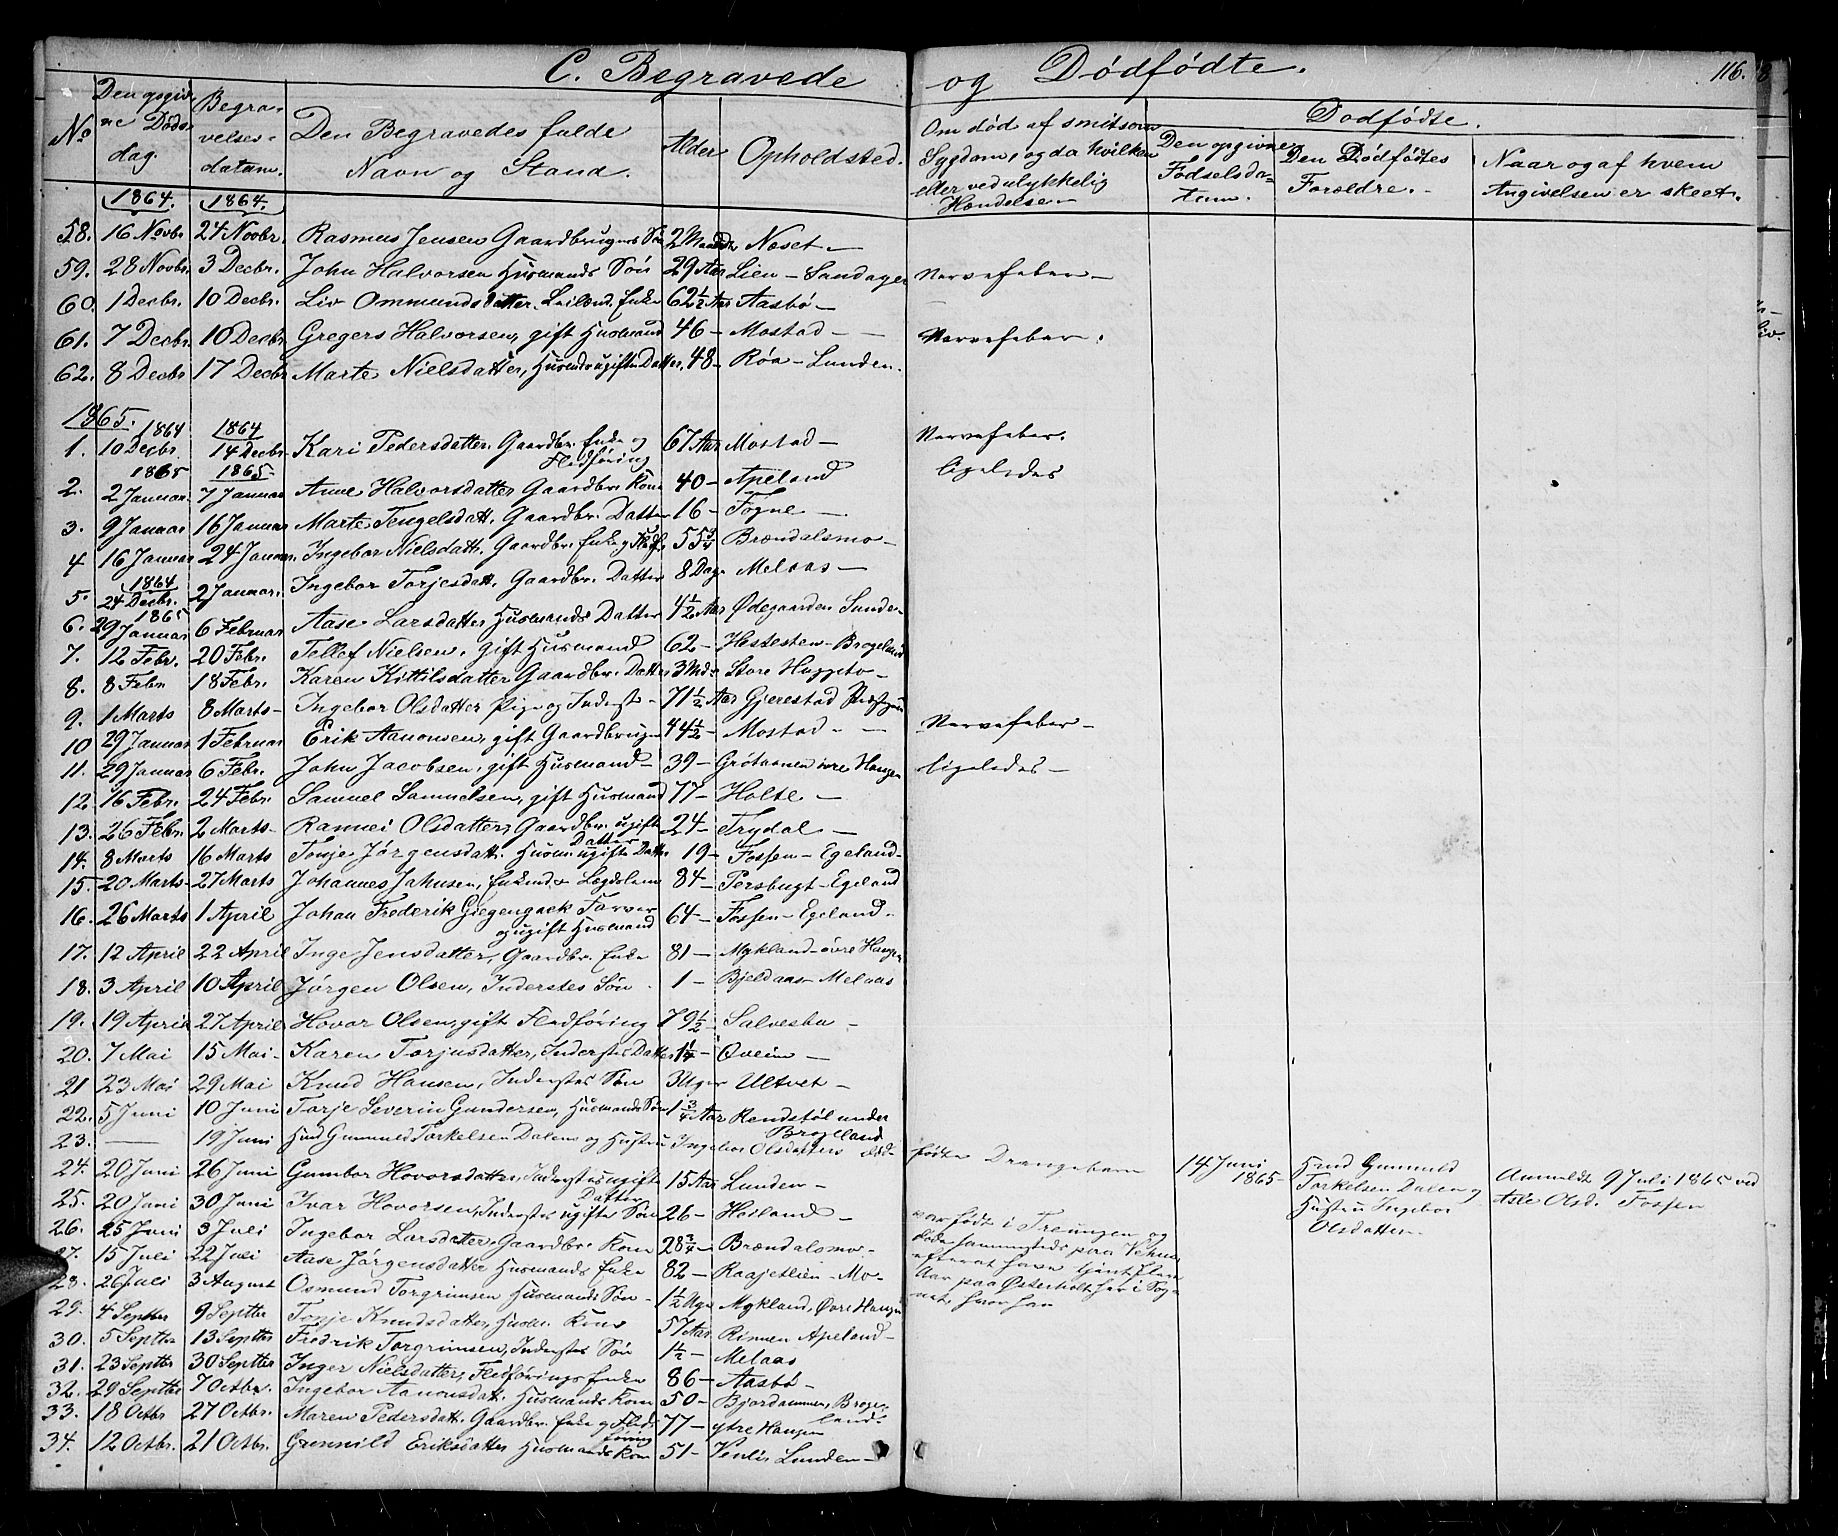 C. Begravede og Dødfødte. 116.
No Den opgivne Dødsdag. Begravelsesdatum. Den Begravedes fulde Navn og Stand. Alder Opholdsted. Om død af smitsom Sygdom, og da hvilken eller ved ulykkelig Hændelse. Dødfødte. Den opgivne Fødselsdatum. Den Dødfødtes Forældre. Naar og af hvem Angivelsen er skeet.
1864. 1864.
58. 16 Novbr 24 Novbr. Rasmus Jensen Gaardbrugers Søn 2 Maaneder Næset
59. 28 Novbr. 3 Decbr. John Halvorsen Husmands Søn 29 Aar Lien - Sandager Nervefeber
60. 1 Decbr. 10 Decbr. Liv Ommundsdatter Leilænd. Enke 62½ Aar Aasbø
61. 7 Decbr. 10 Decbr. Gregers Halvorsen, gift Husmand 46 Mostad Nervefeber.
62. 8 Decbr 17 Decbr Marte Nielsdatter, Husmds ugifte Datter. 48 Røa - Lunden.
1865.
1864 1864
1. 10 Decbr. 14 Decbr. Kari Pedersdatter. Gaardbr. Enke og Fledføring 67 Aar Mostad Nervefeber.
1865 1865
2. 2 Januar. 7 Januar Anne Halvorsdatter Gaardbr. Kone 40 Apeland ligeledes
3. 9 Januar 16 Januar Marte Tengelsdatt. Gaardbr. Datter 16 Fogne
4 16 Januar 24 Januar. Ingebor Nielsdatt. Gaardbr. Enke og Fledf. 55¾ Brændalsmo
1864
5. 24 Decbr. 2 Januar. Ingebor Torjesdatt. Gaardbr. Datter 8 Dage Melaas
1865
6. 29 Januar 6 Februar Aase Larsdatter Husmands Datter 4½ Aar Ødegaarden Sunde
7. 12 Febr. 20 Febr. Tellef Nielsen. gift Husmand 62 Hestesten - Brogeland
8. 8 Febr 18 Febr. Karen Kittilsdatter Gaardbr. Datter 3 Mdr Store Huggeto
9. 1 Marts 8 Marts Ingebor Olsdatter Pige og Inderst 71½ Aar Gjerestad
10 29 Januar 1 Februar Erik Aanonsen, gift Gaardbruger 44½ Mostad Nervefeber
11. 29 Januar 6 Febr. John Jacobsen, gift Husmand 39 ligeledes
12. 16 Febr. 24 Febr. Samuel Samuelsen, gift Husmand 77 Holte
13. 26 Febr. 2 Marts Rannei Olsdatter, Gaardbr. ugift Datter 24 Trydal
14. 8 Marts 16 Marts Tonje Jørgensdatt. Husm. ugifte Datter 19 Fossen - Egeland
15. 20 Marts 27 Marts Johannes Jahnsen, Enkemd & Lægdslem 84 Persbugt - Egeland
16. 26 Marts 1 April Johan Frederik Giegengack Farver og ugift Husmand 64 Fossen - Egeland
17. 12 April 22 April Inge Jensdatter, Gaardbr. Enke 81 Mykland - øvre Haugen
18. 3 April 10 April Jørgen Olsen, Inderstes Søn 1 Bjeldaas - Melaas
19. 19 April 27 April Hovar Olsen, gift Fledføring 79½ Salvesbu
20. 7 Mai 15 Mai Karen Torjusdatter, Inderstes Datter 1¼ Qveim
21 23 Mai 29 Mai Knud Hansen, Inderstes Søn 3 Uger Ultvet
22. 5 Juni 10 Juni Torje Severin Gundersen, Husmands Søn 1¾ Aar Rendstøl under Brogeland
23. 19 Juni Hmd Gunuld Torkelsen Dalen og Hustru Ingebor Olsdatters dødfødte Drengebarn 14 Juni 1865 Hmd Gunuld Torkelsen Dalen og Hustru Ingebor Olsdatter Anmeldt 9 Juli 1865 ved Asle Olsd. Fossen
24. 20 Juni 26 Juni Gunbor Hovorsdatter, Inderstes ugifte Datter 15 Aar Lunden
25. 20 Juni 30 Juni Ivar Hovorsen, Inderstes ugifte Søn 26 Høsland var født i Treungen og døde sammesteds paa Vehus efterat have tjent flere Aar paa Østerholt her i Sognet, hvor han
26. 25 Juni 3 Juli Ingebor Larsdatter, Gaardbr. Kone 28¾ Brændalsmo
27. 15 Juli 22 Juli Aase Jørgensdatter Husmands Enke 82 Raajetlien - Mo
28. 26 Juli 3 August Osmund Torgrimsen Husmands Søn 1½ Uge Mykland, Øvre Haugen
29. 4 Septbr 9 Septbr Tonje Knudsdatter, Husm. Kone 57 Aar Rinnen Apeland
30. 5 Septbr 13 Septbr Fredrik Torgrimsen, Inderstes Søn 1½ Melaas
31. 23 Septbr 30 Septbr Inger Nielsdatter, Fledførings Enke 86 Aasbø
32. 29 Septbr 7 Octbr. Ingebor Aanonsdatt. Husmands Kone 50 Bjordammen, Brogeland
33. 18 Octbr 27 Octbr. Maren Pedersdatt. Gaardbr. Enke og Fledføring 77 ytre Haugen
34. 12 Octbr. 21 Octbr. Grunnild Eriksdatter Husmands Kone 51 Venlis Lunden